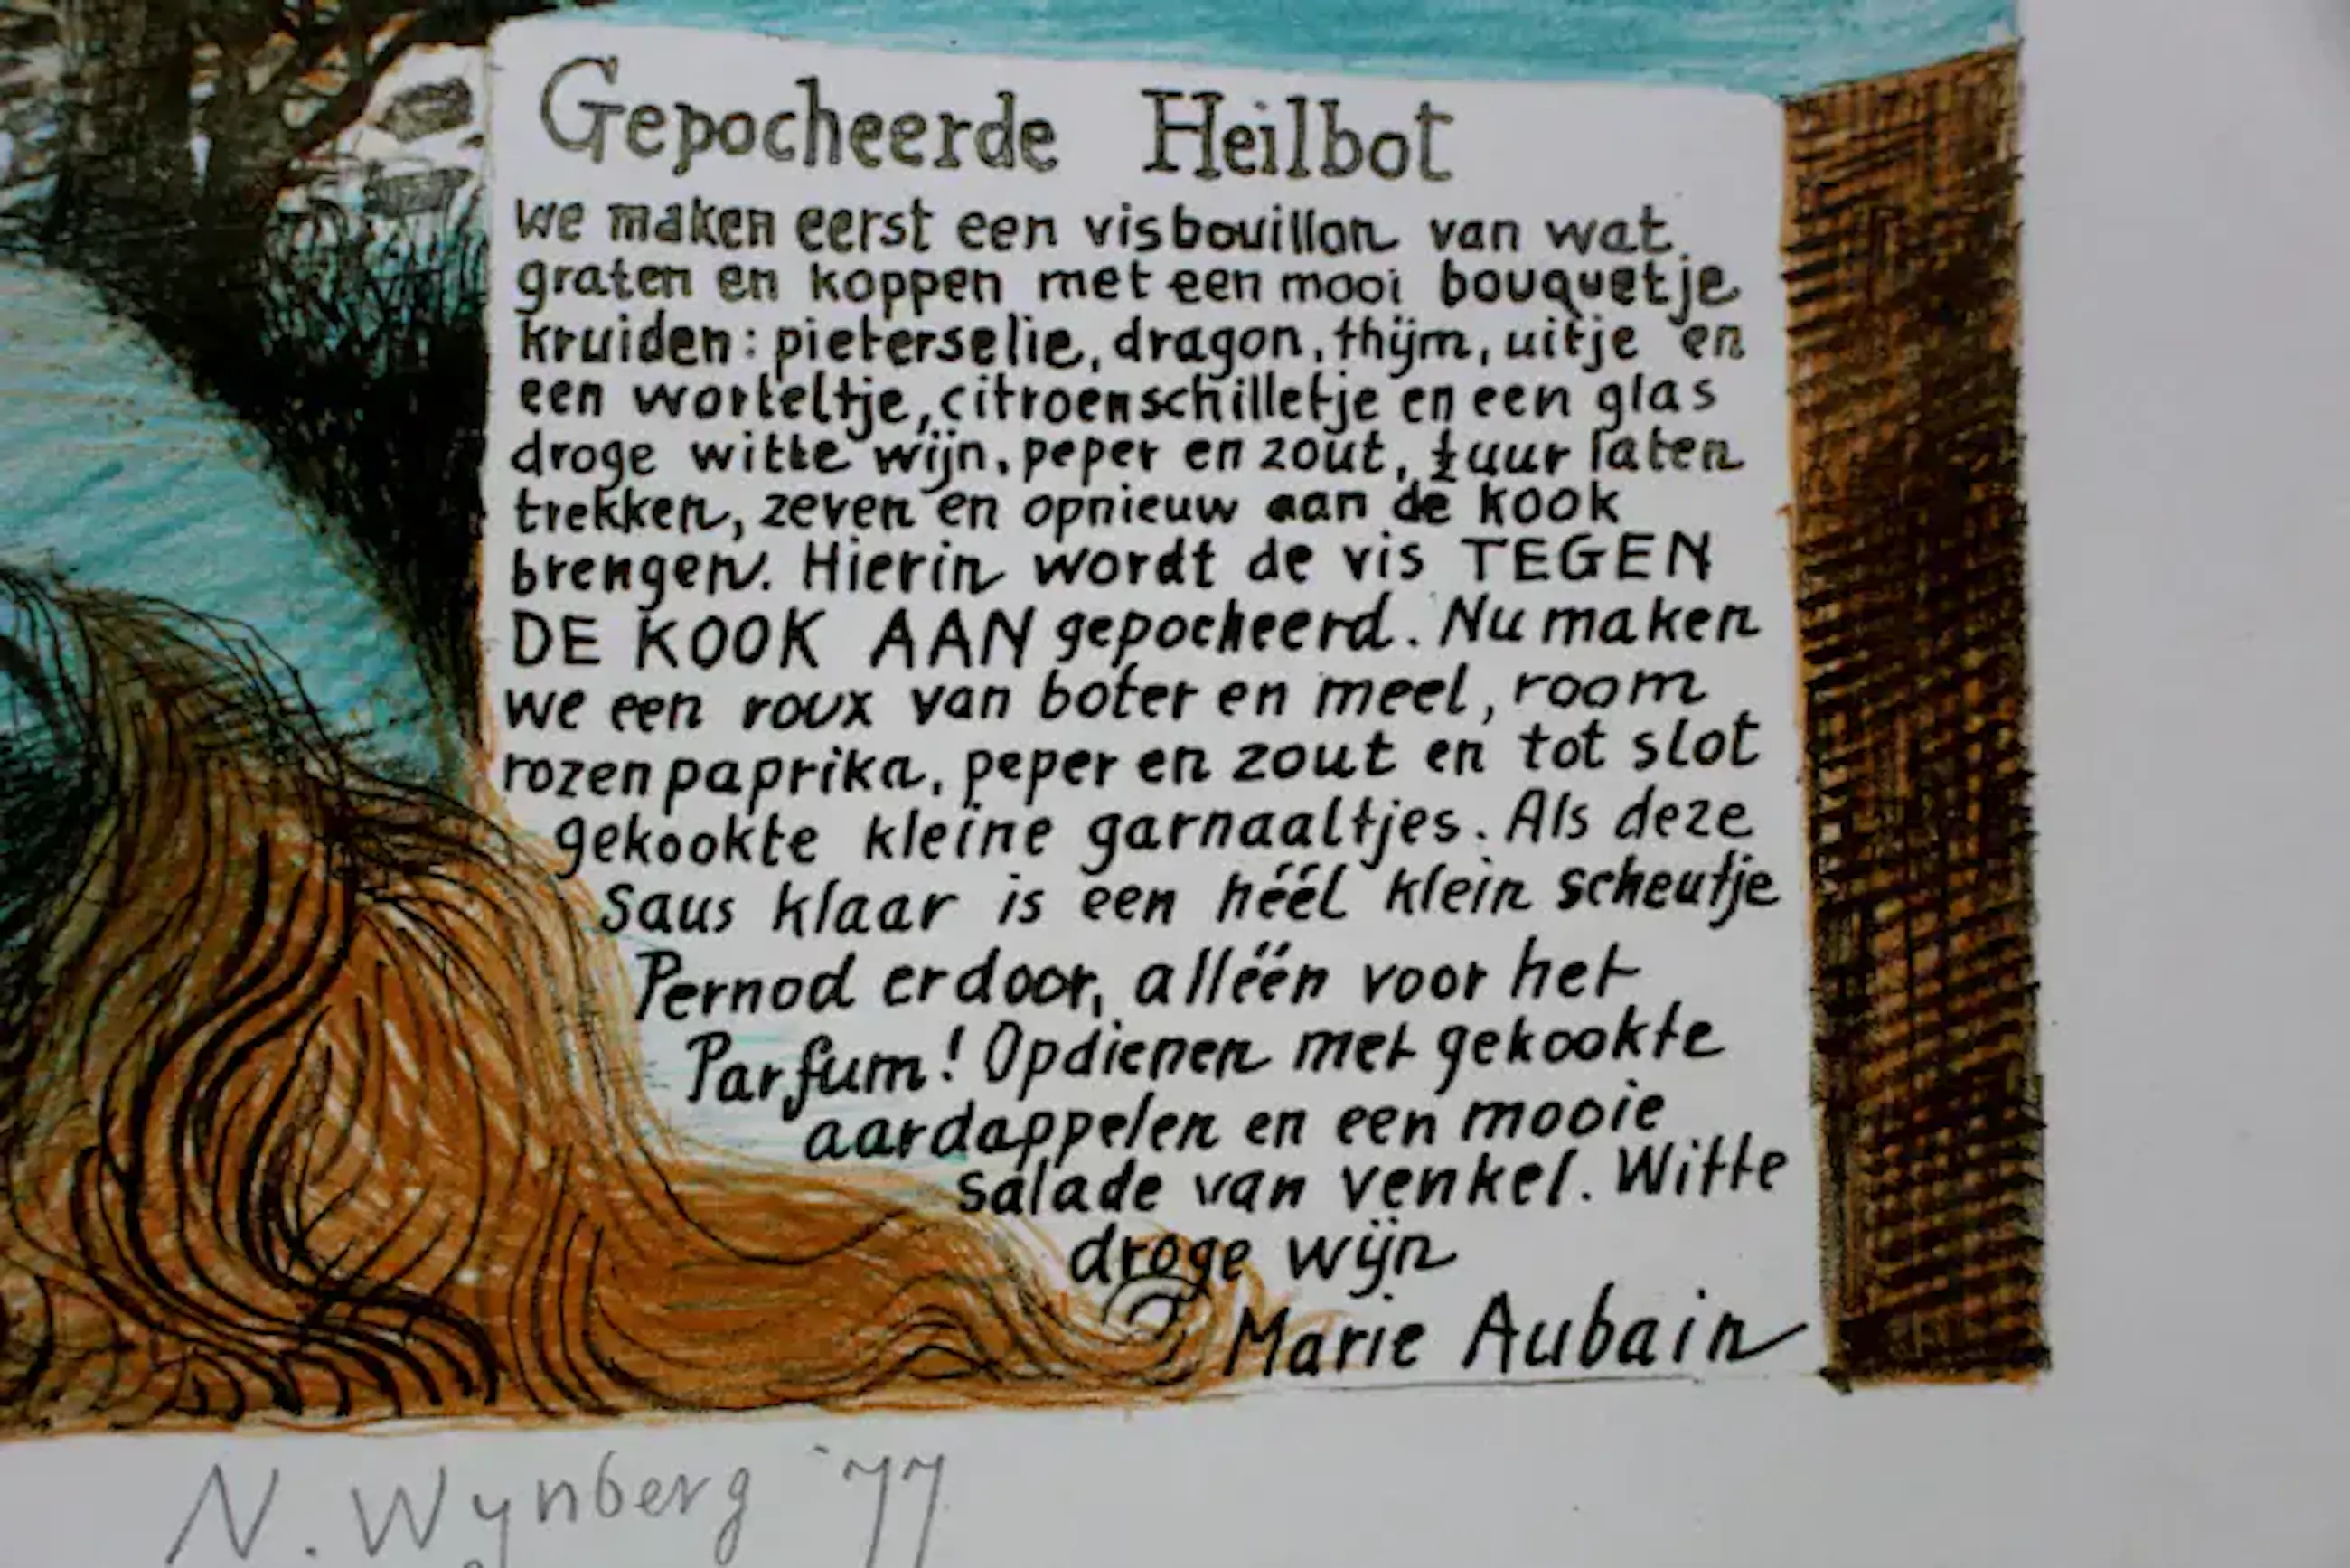 Gepocheerde Heilbot
we maken eerst een visbouillon van wat
graten en koppen met een mooi bouquetje
kruiden: pieterselie, dragon, thijm, uitje en
een worteltje, citroenschilletje en een glas
droge witte wijn, peper en zout, ½ uur laten
trekken, zeven en opnieuw aan de kook
brengen. Hierin wordt de vis TEGEN
DE KOOK AAN gepocheerd. Nu maken
we een roux van boter en meel, room
rozenpaprika, peper en zout en tot slot
gekookte kleine garnaaltjes. Als deze
saus klaar is een héél klein scheutje
Pernod erdoor, alléén voor het
Parfum! Opdienen met gekookte
aardappelen en een mooie
salade van venkel. Witte
droge wijn
Marie Aubain
N. Wynberg '77